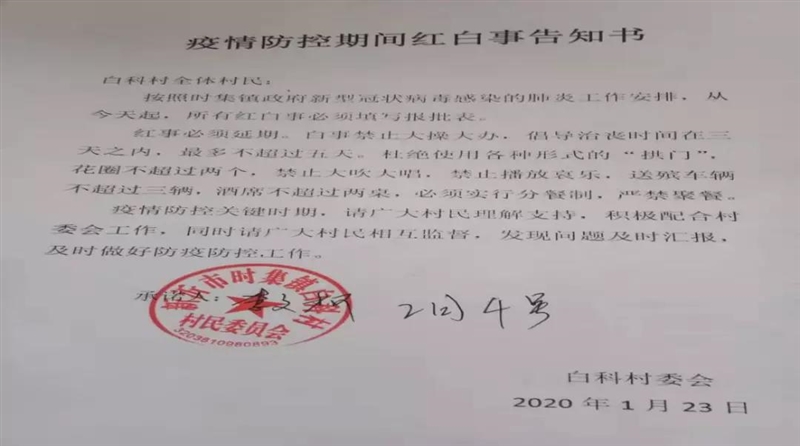 疫情防控期间红白事告知书
白科村全体村民：
按照时集镇政府新型冠状病毒感染的肺炎工作安排，从
今天起，所有红白事必须填写报批表。
红事必须延期。白事禁止大操大办，倡导治丧时间在三
天之内，最多不超过五天。杜绝使用各种形式的“拱门”，
花圈不超过两个，禁止大吹大唱，禁止播放哀乐，送殡车辆
不超过三辆，酒席不超过两桌，必须实行分餐制，严禁聚餐。
疫情防控关键时期，请广大村民理解支持，积极配合村
委会工作，同时请广大村民相互监督，发现问题及时汇报，
及时做好防疫防控工作。
承诺人： 2月4号
市时集镇白科村
村民委员会
3203810980893
白科村委会
2020年1月23日